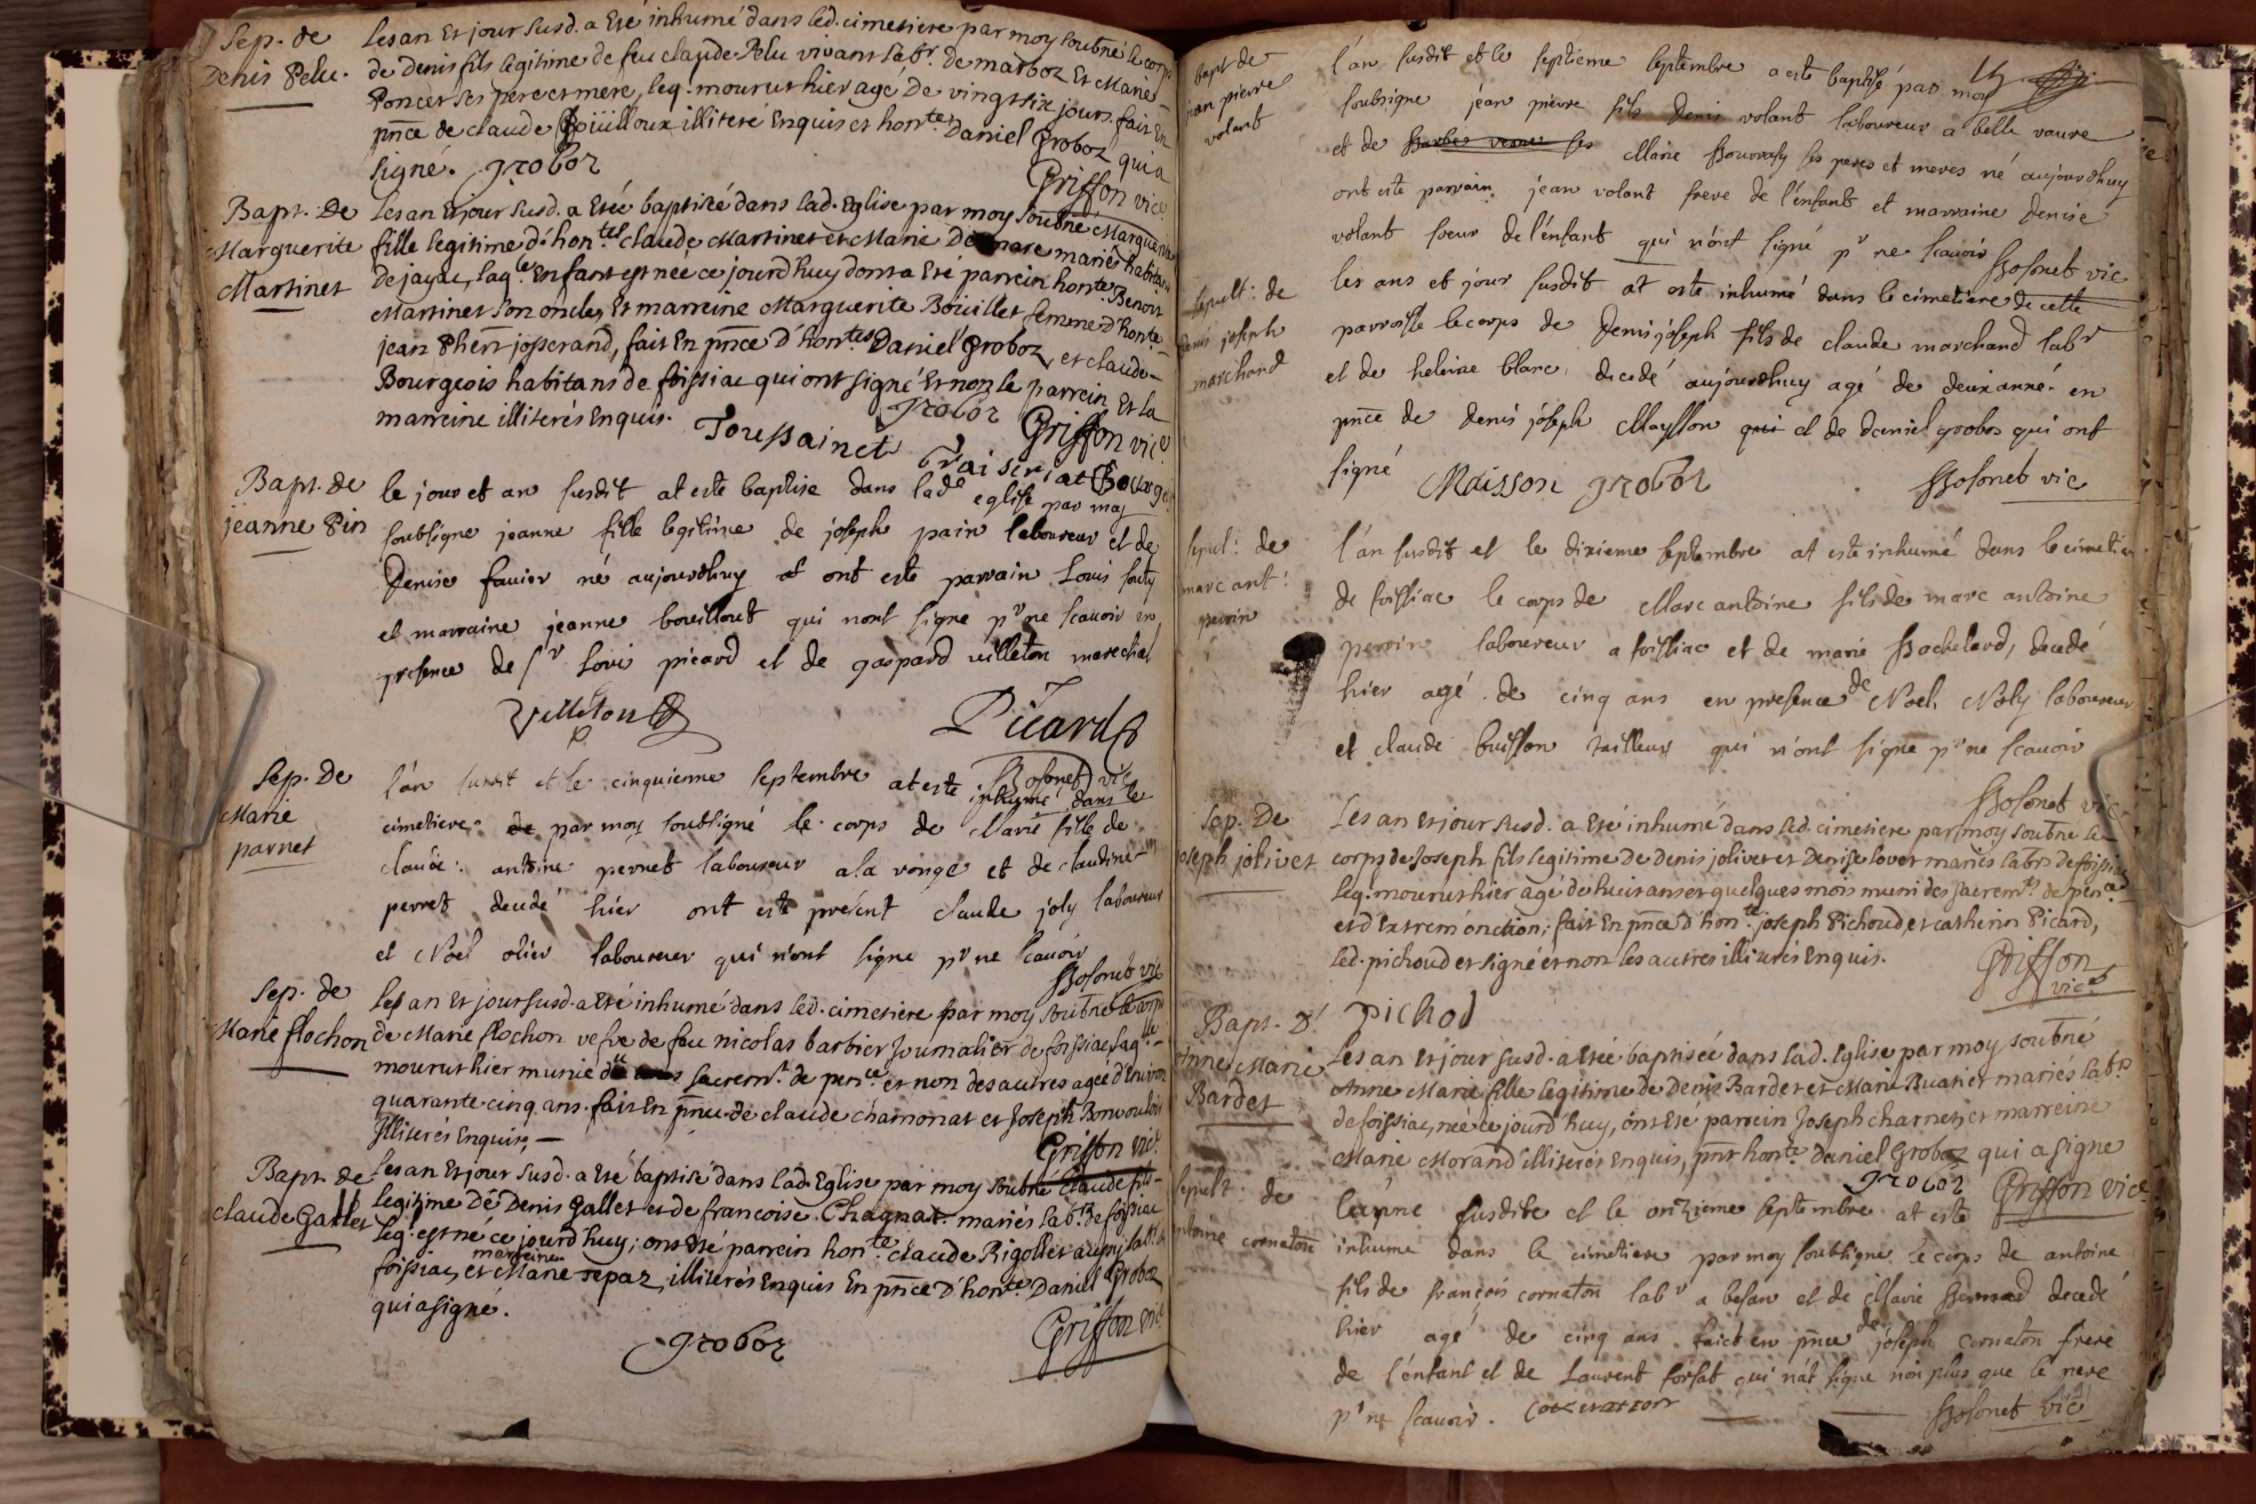 Sep. de
Denis Pelu.
Les an et jour susd. a eté inhumé dans led. cimetiere par moy soubné le corps
de Denis fils legitime de feu claude Pelu vivant labr. de marboz et Marie
Poncet ses pere et mere, leq. mourut hier agé de vingt six jours. fait en
pnce de claude Boüilloux illiteré enquis et honte. Daniel Groboz qui a
signé. groboz
Griffon vice.
Bapt. De
Marguerite
Martinet
Les an et jour susd. a eté baptisée dans lad. Eglise par moy soubné Marguerite
fille legitime d'hontes Claude Martinet et Marie mariés habitans
de jayac, laqle. enfant est née ce jourd'huy dont a eté parrein honte. Benoit
Martinet son oncle, et marreine Marguerite Boüillet femme d'honte.
jean Phert josserand, fait en pnce d'hontes Daniel Groboz et claude
Bourgeois habitans de foissiac qui ont signé et non le parrein et la
marreine illiterés enquis.
groboz
Toussainct
Griffon vice.
Bapt. de
jeanne Pin
le jour et an susdit at esté baptise dans lade eglise par moy
soubsigne jeanne fille legitime de joseph pain laboureur et de
Denise favier né aujourdhuy et ont este parrain Louis
et marraine jeanne bouillout qui nont signe pr ne scavoir en
presence de sr Loui picard et de gaspard villeton marechal
Villeton
Picard
Bosonet vic
Sep. de
Marie
parnet
l'an susdit et le cinquieme septembre at este inhumé dans le
cimetiere de par moy soubsigné le corps de Marie fille de
claude antoine pernet laboureur a la et de claudine
perret decedé hier ont esté présent claude joly laboureur
et Noel olier laboureur qui n'ont signe pr ne scavoir
Bosonet vic
Sep. de
Marie flochon
Les an et jour susd. a eté inhumé dans led. cimetiere par moy soubné le corps
de Marie flochon vefve de feu nicolas barbier journalier de foissiac, laqlle.
mourut hier munie du sacremt. de pence. et non des autres agée d'environ
quarante cinq ans. fait en pnce de claude chamonat et Joseph
illiterés enquis,
Griffon vic.
Bapt. de
claude Gallet
Les an et jour susd. a eté baptisé dans lad. Eglise par moy soubné Claude fils
legitime de Denis Gallet et de francoise Chagnat mariés labrs. de foissiac
leq. est né ce jourd'huy; ont eté parrein honte. claude Rigollet aussy labr. de
foissiac, et marreine Marie repaz, illiterés enquis en pnce d'honte. Daniel Groboz
qui a signé.
groboz
Griffon vic.
bapt de
jean pierre
volant
l'an susdit et le septieme septembre a esté baptisé par moy
soubsigne jean pierre fils denis volant laboureur a belle vavre
et de ses Marie ses peres et meres né aujourdhuy
ont esté parrain jean volant frere de l'enfant et marraine denise
volant soeur de l'enfant qui n'ont signé pr ne scavoir
Bosonet vic
Sepult: de
denis joseph
marchand
les ans et jour susdit at esté inhumé dans le cimetiere de cette
parroisse le corps de denis joseph fils de claude marchand labr
et de heleine blanc, decedé aujourdhuy agé de deux anné. en
pnce de denis joseph Maysson qui et de daniel grobos qui ont
signé
Maisson groboz
Bosonet vic
sepul: de
marc ant:
perrin
l'an susdit et le dixieme septembre at esté inhumé dans le cimetiere
de foissiac le corps de Marc antoine fils de marc antoine
perrin laboureur a foissiac et de marie Bachelard, decedé
hier agé de cinq ans en presence de Noel Noly laboureur
et claude buisson tailleur qui n'ont signe pr ne scavoir
Bosonet vic
Sep. De
oseph jolivet
Les an et jour susd. a eté inhumé dans led. cimetiere par moy soubné le
corps de Joseph fils legitime de Denis jolivet et Denise lovet mariés labrs. de foissiac
leq. mourut hier agé de huit ans et quelques mois muni des sacremts. de pence.
et d'extrem'onction; fait en pnce d'honte. joseph Pichoud, et catherin Picard,
led. pichoud et signé et non les autres illiterés enquis.
Griffon
vice.
pichod
Bapt. D'
Anne Marie
Bardet
Les an et jour susd. a eté baptisée dans lad. Eglise par moy soubné
Anne Marie fille legitime de Denis Bardet et Marie Buatier mariés labrs.
de foissiac, née ce jourd'huy, ont eté parrein Joseph charnet, et marreine
Marie Morand illiterés enquis, pnt honte. Daniel Groboz qui a signe
groboz
Griffon vice.
sepult: de
antoine cornaton
susdite et le onzieme septembre at este
inhume dans le cimetiere par moy soubsigne le corps de antoine
fils de françois cornaton labr a besan et de Marie Bernard decedé
hier agé de cinq ans faict en pnce de joseph cornaton frere
de l'enfant et de Laurent forsat qui n'at signe non plus que le pere
pr ne scavoir.
Bosonet vic